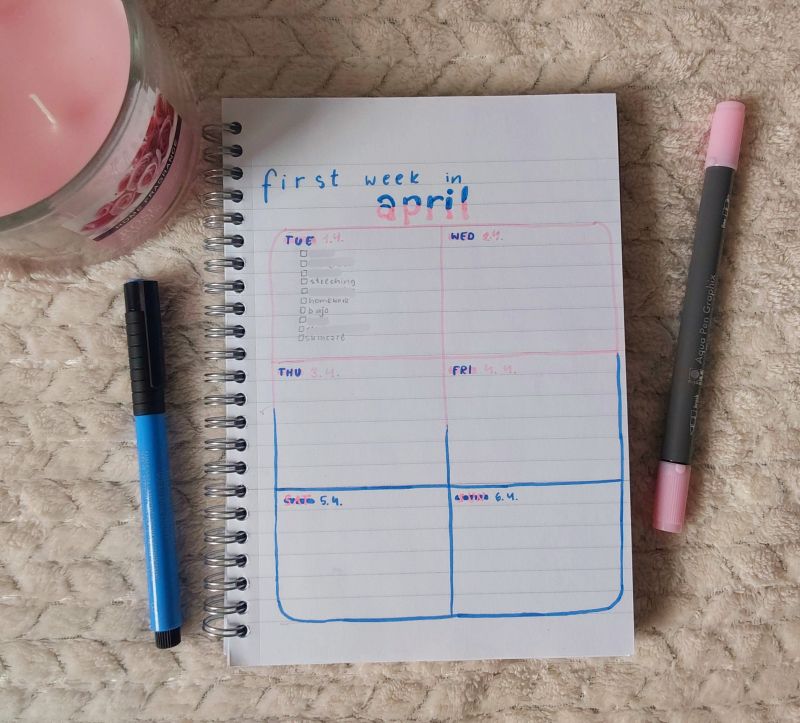 first week in
april
TUE 1.4.
streching
homework
bujo
skincare
WED 2.4.
THU 3.4.
FRI 4.4.
SAT 5.4.
SUN 6.4.
Aqua Pen Graphix